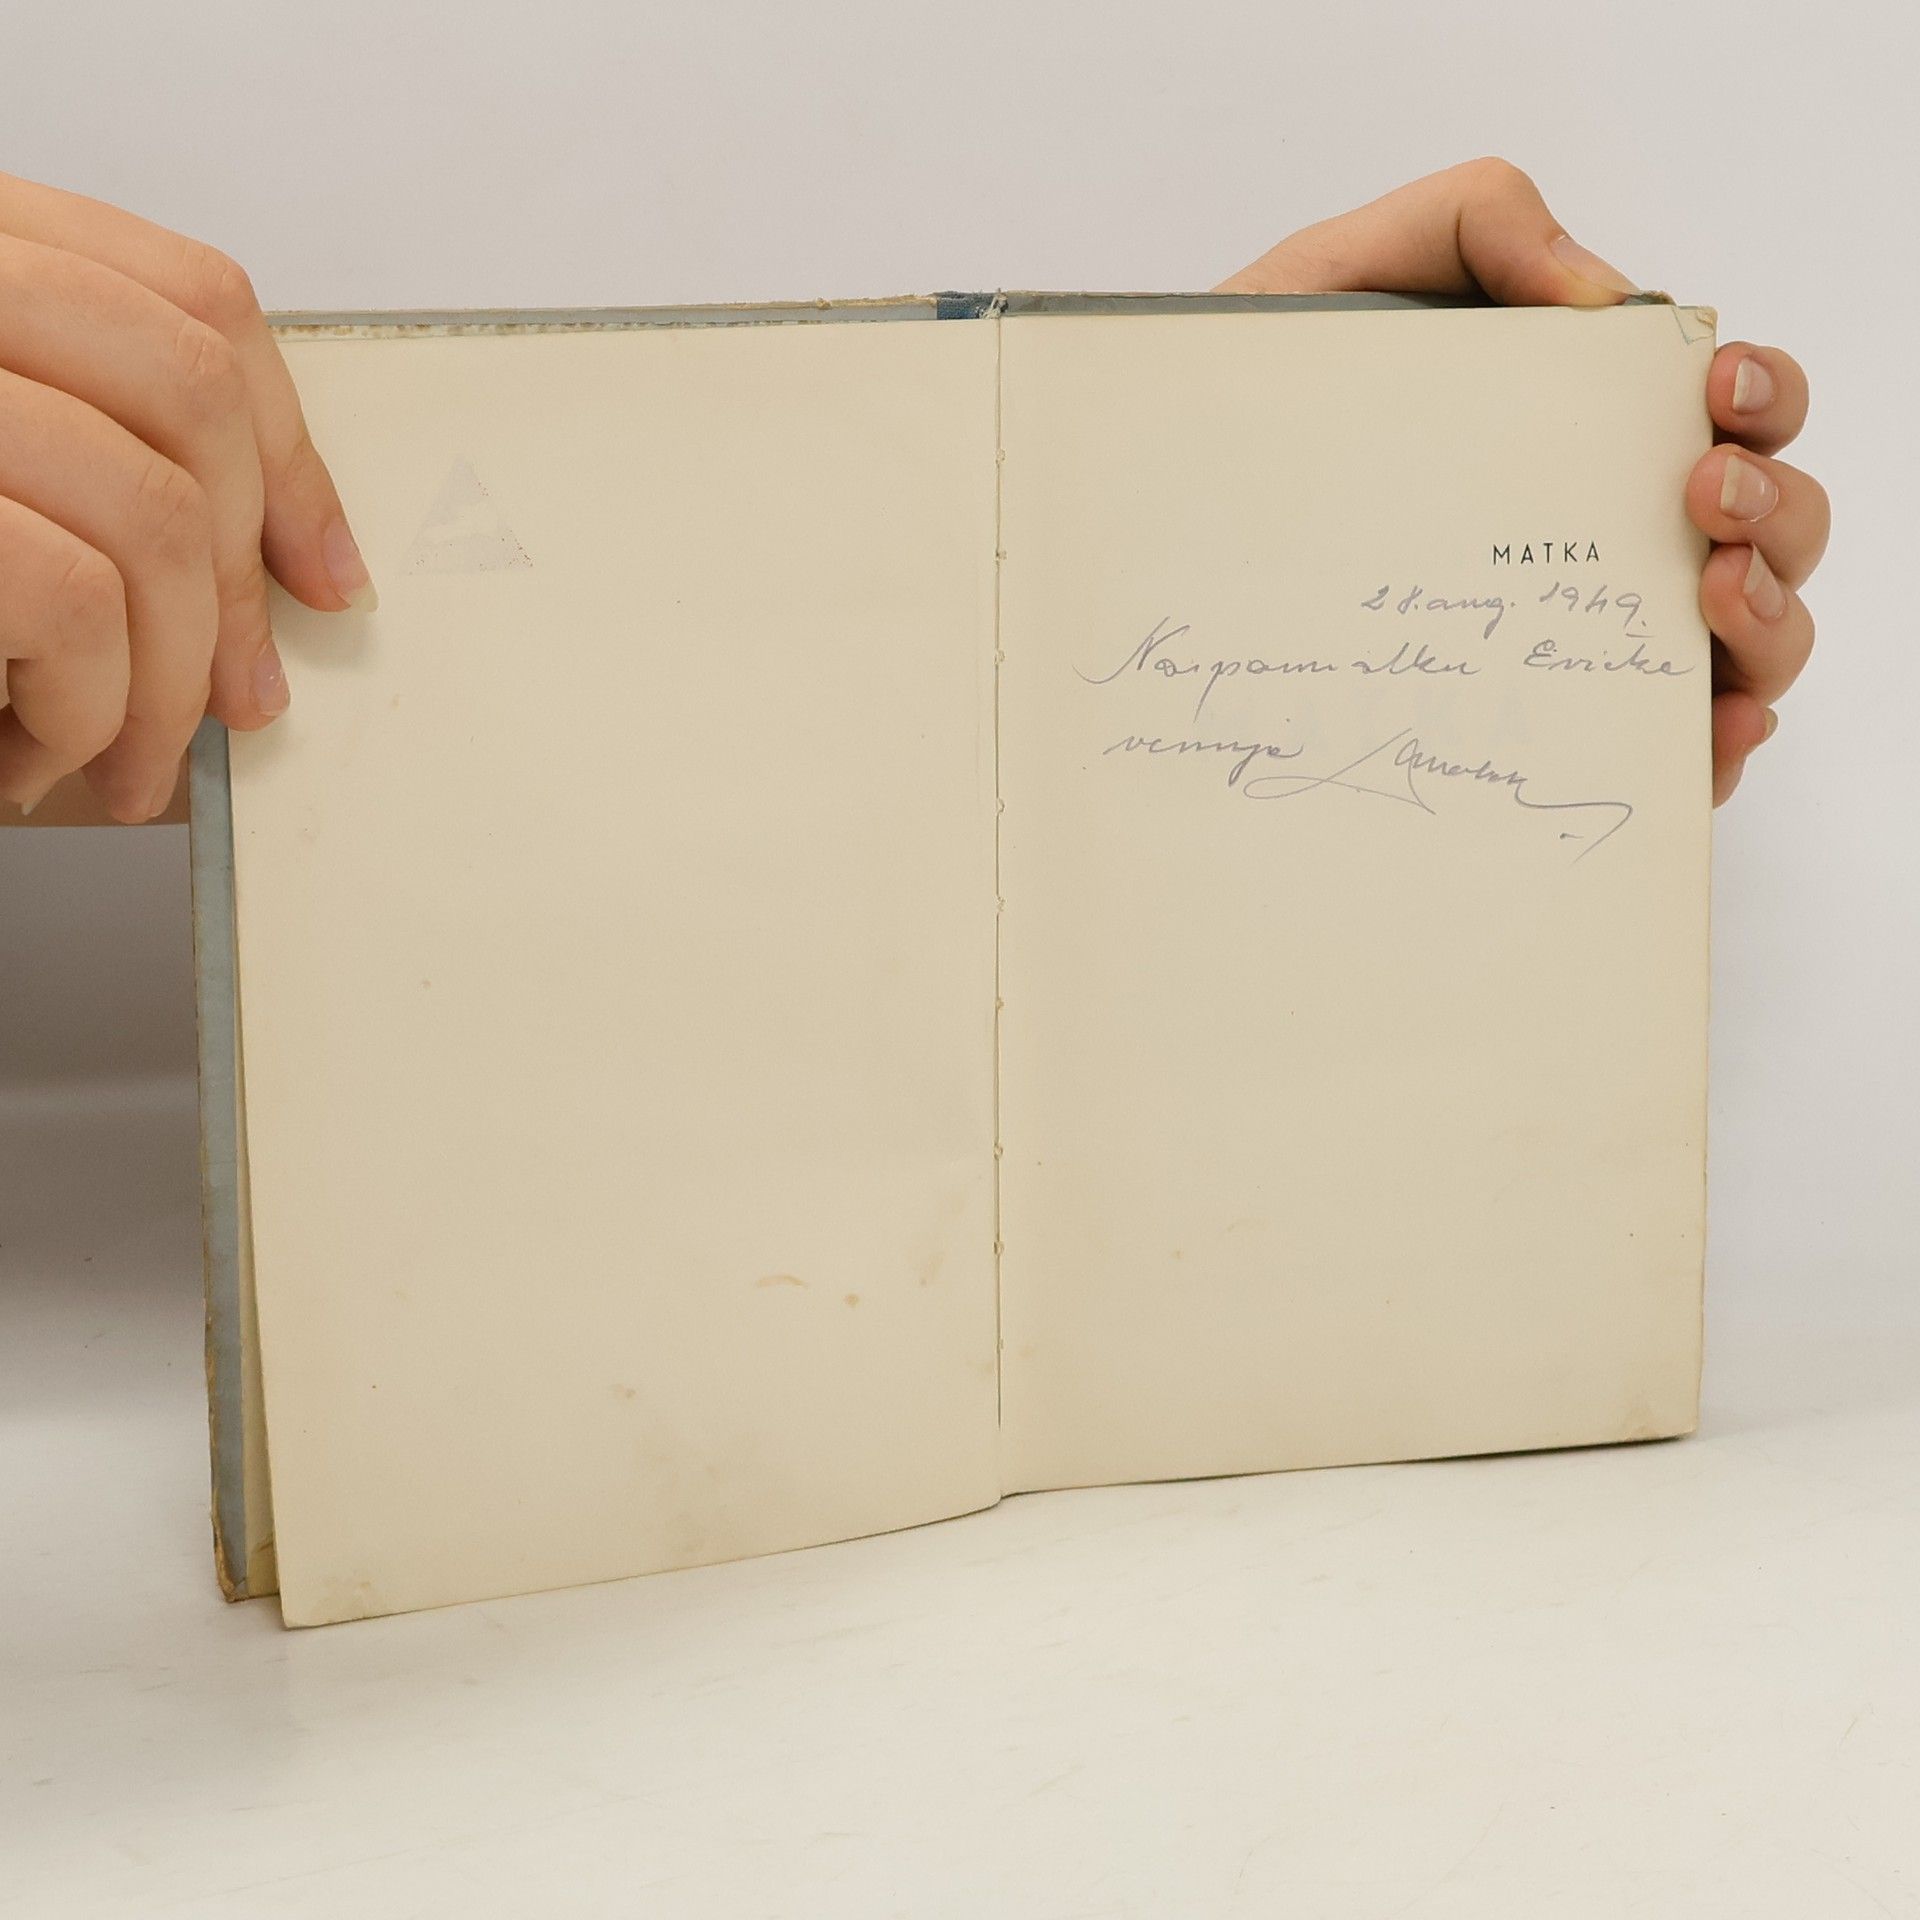 MATKA
28. aug. 1949.
Na pamiatku Evičke
venuje